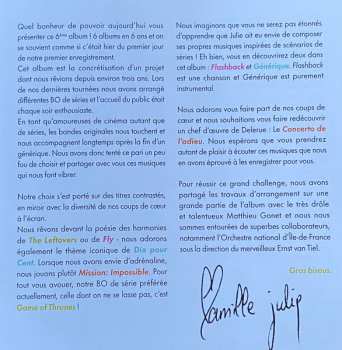 Quel bonheur de pouvoir aujourd'hui vous
présenter ce 6ème album ! 6 albums en 6 ans et on
se souvient comme si c'était hier du premier jour
de notre premier enregistrement.
Cet album est la concrétisation d'un projet
dont nous rêvions depuis environ trois ans. Lors
de nos dernières tournées nous avons arrangé
différentes BO de séries et l'accueil du public était
chaque soir enthousiaste.
En tant qu'amoureuses de cinéma autant que
de séries, les bandes originales nous touchent et
nous accompagnent longtemps après la fin d'un
générique. Nous avons donc tenté ce pari un peu
fou de choisir et partager avec vous ces musiques
qui nous font vibrer.
Notre choix s'est porté sur des titres contrastés,
en miroir avec la diversité de nos coups de cœur
à l'écran.
Nous rêvons devant la poésie des harmonies
de The Leftovers ou de Fly - nous adorons
également le thème iconique de Dix pour
Cent. Lorsque nous avons envie d'adrénaline,
nous jouons plutôt Mission: Impossible. Pour
tout vous avouer, notre BO de série préférée
actuellement, celle dont on ne se lasse pas, c'est
Game of Thrones !
Nous imaginons que vous ne serez pas étonnés
d'apprendre que Julie ait eu envie de composer
ses propres musiques inspirées de scénarios de
séries ! Eh bien, vous en découvrirez deux dans
cet album : Flashback et Générique. Flashback
est une chanson et Générique est purement
instrumental.
Nous adorons vous faire part de nos coups de
cœur et nous souhaitions vous faire redécouvrir
un chef d'œuvre de Delerue : Le Concerto de
l'adieu. Nous espérons que vous prendrez
autant de plaisir à écouter ces musiques que nous
en avons éprouvé à les enregistrer pour vous.
Pour réussir ce grand challenge, nous avons
partagé les travaux d'arrangement sur une
grande partie de l'album avec le très drôle
et talentueux Matthieu Gonet et nous nous
sommes entourées de superbes collaborateurs,
notamment l'Orchestre national d'Île-de-France
sous la direction du merveilleux Ernst van Tiel.
Gros bisous.
Camille julie